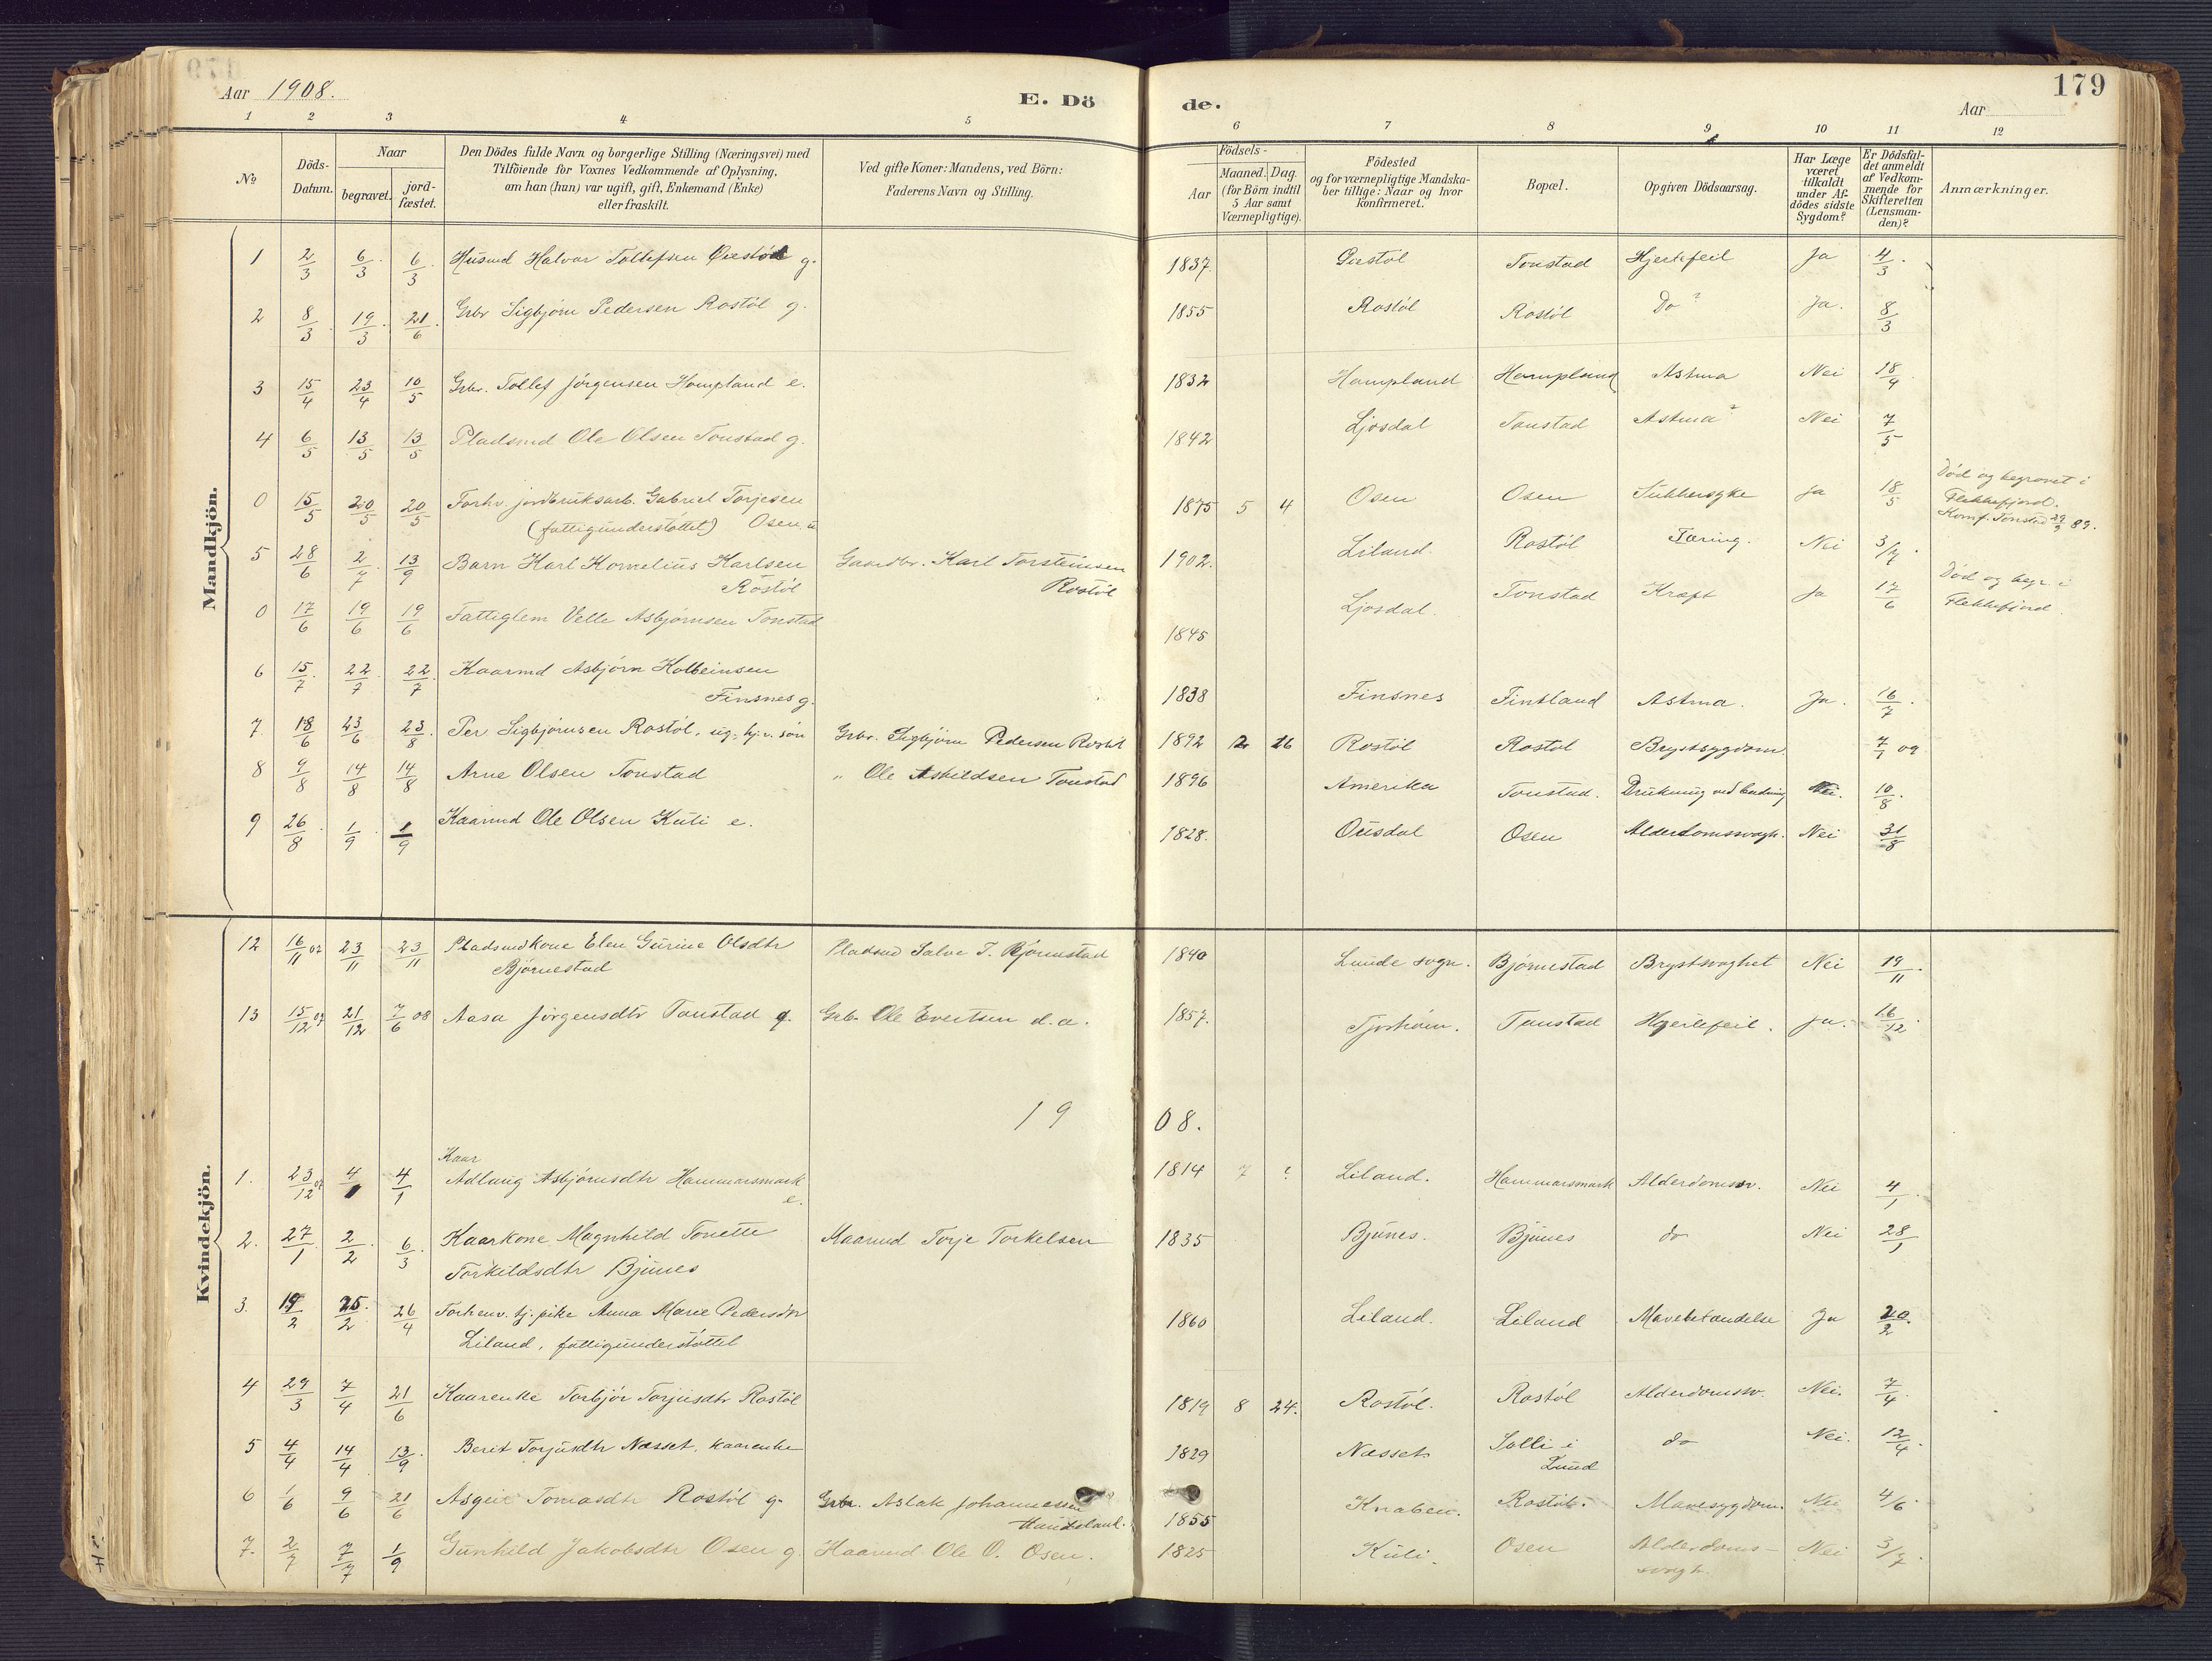 Aar 1908.
E. Dö
de.
Aar
179
1 2 3 4 5 6 7 8 9 10 11 12
No
Döds-Datum.
Naar
begravet.
jord-fæstet.
Den Dödes fulde Navn og borgerlige Stilling (Næringsvei) med
Tilföiende for Voxnes Vedkommende af Oplysning,
om han (hun) var ugift, gift, Enkemand (Enke)
eller fraskilt.
Ved gifte Koner: Mandens, ved Börn:
Faderens Navn og Stilling.
Födsels-
Aar
Maaned. Dag.
(for Börn indtil
5 Aar samt
Værnepligtige).
Födested
og for værnepligtige Mandska-
ber tillige: Naar og hvor
konfirmeret.
Bopæl.
Opgiven Dödsaarsag.
Har Læge
været
tilkaldt
under Af-
dödes sidste
Sygdom?
Er Dödsfal-
det anmeldt
af Vedkom-
mende for
Skifteretten
(Lensman-
den)?
Anmærkninger.
Mandkjön.
1 2/3 6/3 6/3 Husmd Halvor Tollefsen g. 1837 Tonstad Hjertefeil Ja 4/3
2 8/3 19/3 21/6 Grbr Sigbjørn Pedersen Rostøl g. 1855 Rostøl Rostøl Do ? Ja. 8/3
3 15/4 23/4 10/5 Grbr. Tollef Jørgensen Hompland e. 1832 Hompland Hompland Astma Nei 18/4
4 6/5 13/5 13/5 Pladsmd Ole Olsen Tonstad g. 1842 Ljosdal Tonstad Astma ? Nei 7/5
0 15/5 20/5 20/5 Forhv. jordbruksarb. Gabriel Torjesen 1875 5 4 Osen Osen Sukkersyke Ja 18/5 Död og begravet i
(fattigunderstøttet) Osen, u Flekkefjord.
Konf. Tonstad 29/9 89.
5 28/6 2/7 13/9 Barn Karl Kornelius Karlsen Gaardbr. Karl Torsteinsen 1902. Liland. Rostøl Tæring. Nei 3/7
Rostøl Rostøl
0 17/6 19/6 19/6 Fattiglem Velle Asbjørnsen Tonstad 1845 Ljosdal. Tonstad Kræft Ja 17/6 Død og begr. i
Flekkefjord.
6 15/7 22/7 22/7 Kaarmd Asbjørn Kolbeinsen
Finsnes g. 1838 Finsnes Fintland Astma. Ja. 16/7
7 18/6 23/6 23/8 Per Sigbjørnsen Rostøl, ug. hj.v. søn Grbr. Sigbjørn Pedersen Rostøl 1892 12 26 Rostøl Rostøl Brystsygdom. 7/7 09
8 9/8 14/8 14/8 Arne Olsen Tonstad " Ole Askildsen Tonstad 1896 Amerika Tonstad. Drukning ved badning Nei. 10/8
9 26/8 1/9 1/9 Kaarmd Ole Olsen Kuli e. 1828. Ousdal Osen Alderdomssvagh. Nei 31/8
Kvindekjön.
12 16/11 07 23/11 23/11 Pladsmdkone Elen Gurine Olsdtr Pladsmd Salve T. Bjørnestad 1840 Lunde sogn. Bjørnestad Brystsvaghet Nei 19/11
Bjørnestad
13 15/12 07 21/12 7/6 08 Aasa Jørgensdtr Tonstad g. Grb. Ole Evertsen d.a. 1857. Tjorhom. Tonstad Hjertefeil. Ja. 16/12
1908.
Kaar
1. 23/12 07 4/1 4/1 Adlaug Asbjørnsdtr Hammarsmark 1814 7 ? Liland. Hammarsmark Alderdomssv. Nei 4/1
e.
2. 27/1 2/2 6/3 Kaarkone Magnhild Tonette Kaarmd Torje Torkelsen 1835 Bjunes. Bjunes do Nei 28/1
Torkildsdtr Bjunes
3. 19/2 25/2 26/4 Forhenv. tj. pike Anna Marie Pedersdtr 1860 Liland. Liland Mavebetændelse Ja 20/2
Liland, fattigunderstøttet
4 29/3 7/4 21/6 Kaarenke Torbjør Torjusdtr Rostøl 1819 8 24. Rostøl. Rostøl Alderdomssv. Nei. 7/4
5 4/4 14/4 13/9 Berit Torjusdtr Nesset, kaarenke 1829 Nesset. Solli i do Nei. 12/4
Lund
6 1/6 9/6 21/6 Asgeir Tomasdtr Rostøl g. Grbr. Aslak Johannessen 1855 Knaben. Rostøl. Mavesygdom. Nei 4/6
7. 2/7 7/7 1/9 Gunhild Jakobsdtr Osen g. Kaarmd Ole O. Osen. 1825 Kuli. Osen Alderdoms- Nei 3/7
svagh.